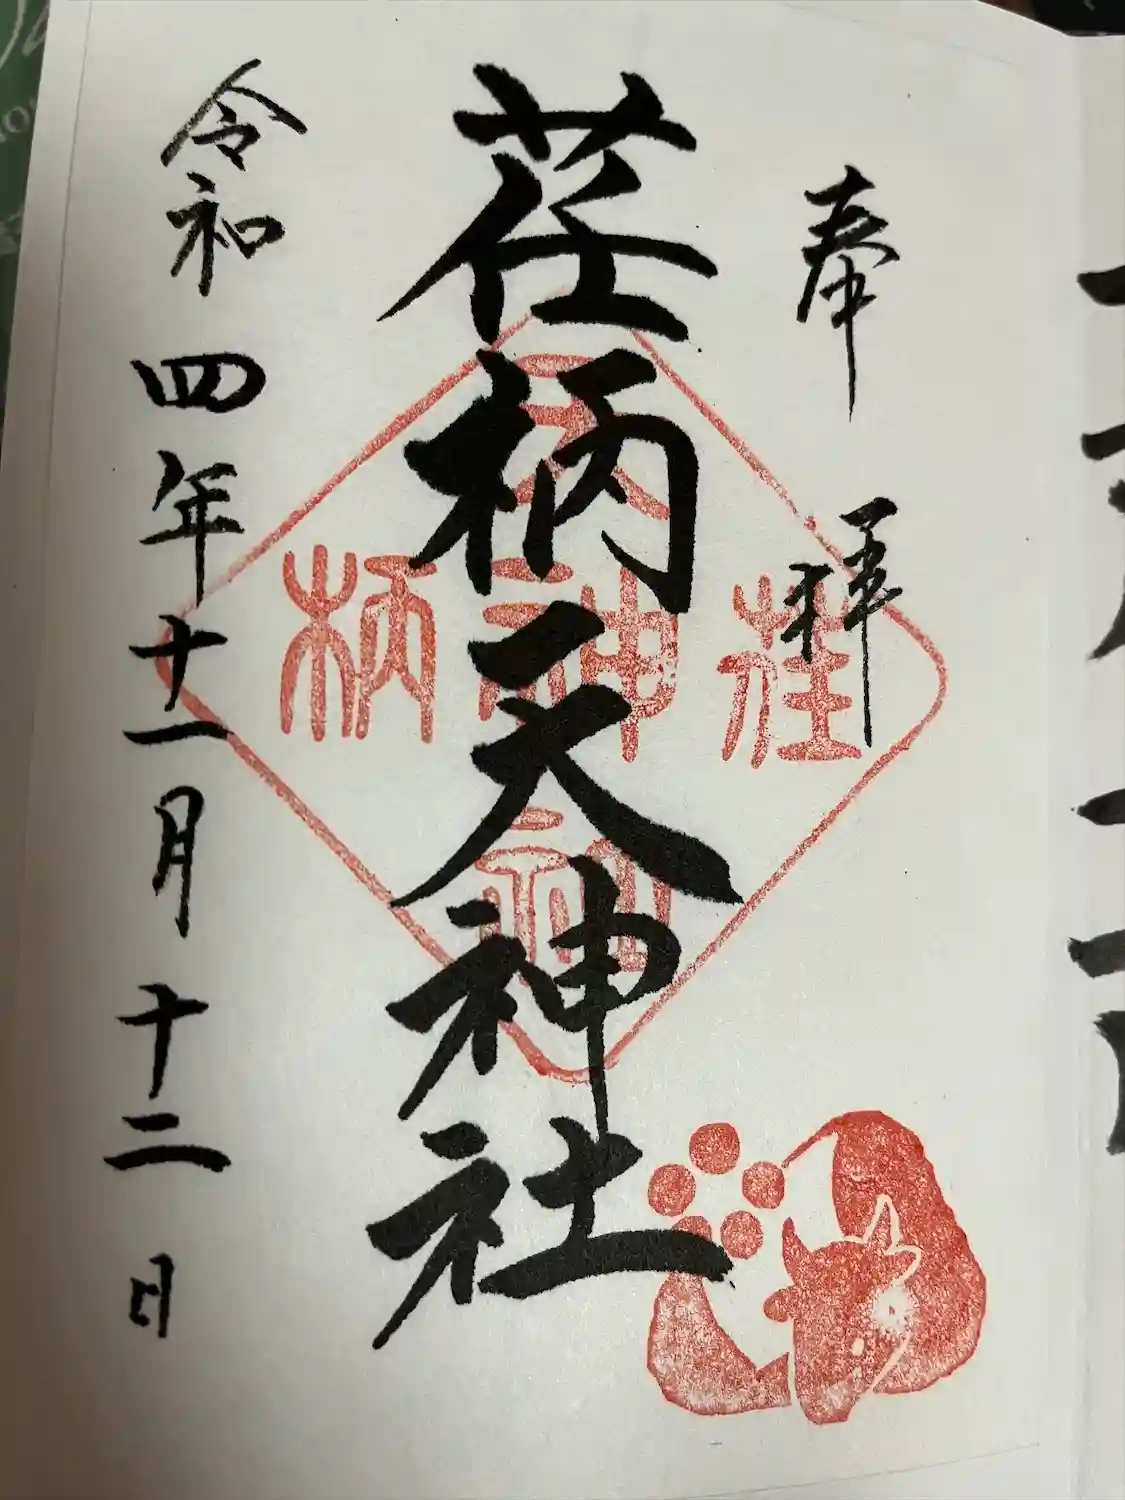 奉拝
荏柄天神社
令和四年十一月十二日
荏
天神社
柄